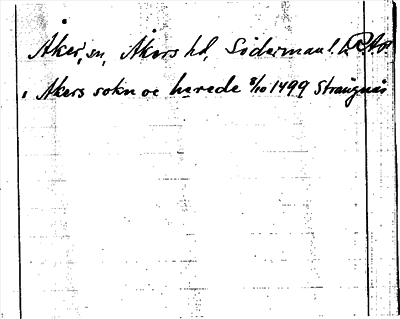 Åker, sn, Åkers hd, Söderманl. RAp
i Akers sokn oc herede 8/10 1499 Strängnäs